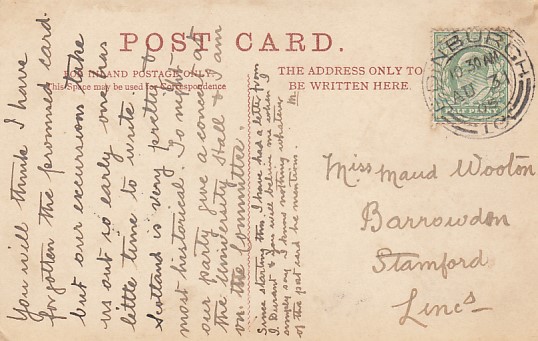 POST CARD.
FOR INLAND POSTAGE ONLY
This Space may be used for Correspondence
THE ADDRESS ONLY TO
BE WRITTEN HERE.
EDINBURGH
10.30AM
AU 3
HALF PENNY
You will think I have
forgotten the promised card.
but our excursions take
us out so early one has
little time to write
Scotland is very pretty &
most historical. To night
our party give a concert at
the University Hall & I am
on the Committee.
Since starting this, I have had a letter from
I Durant & you will believe me when I
simply say I know nothing whatever
of the post card he mentions.
M
Miss Maud Wooton
Barrowdon
Stamford
Lincs